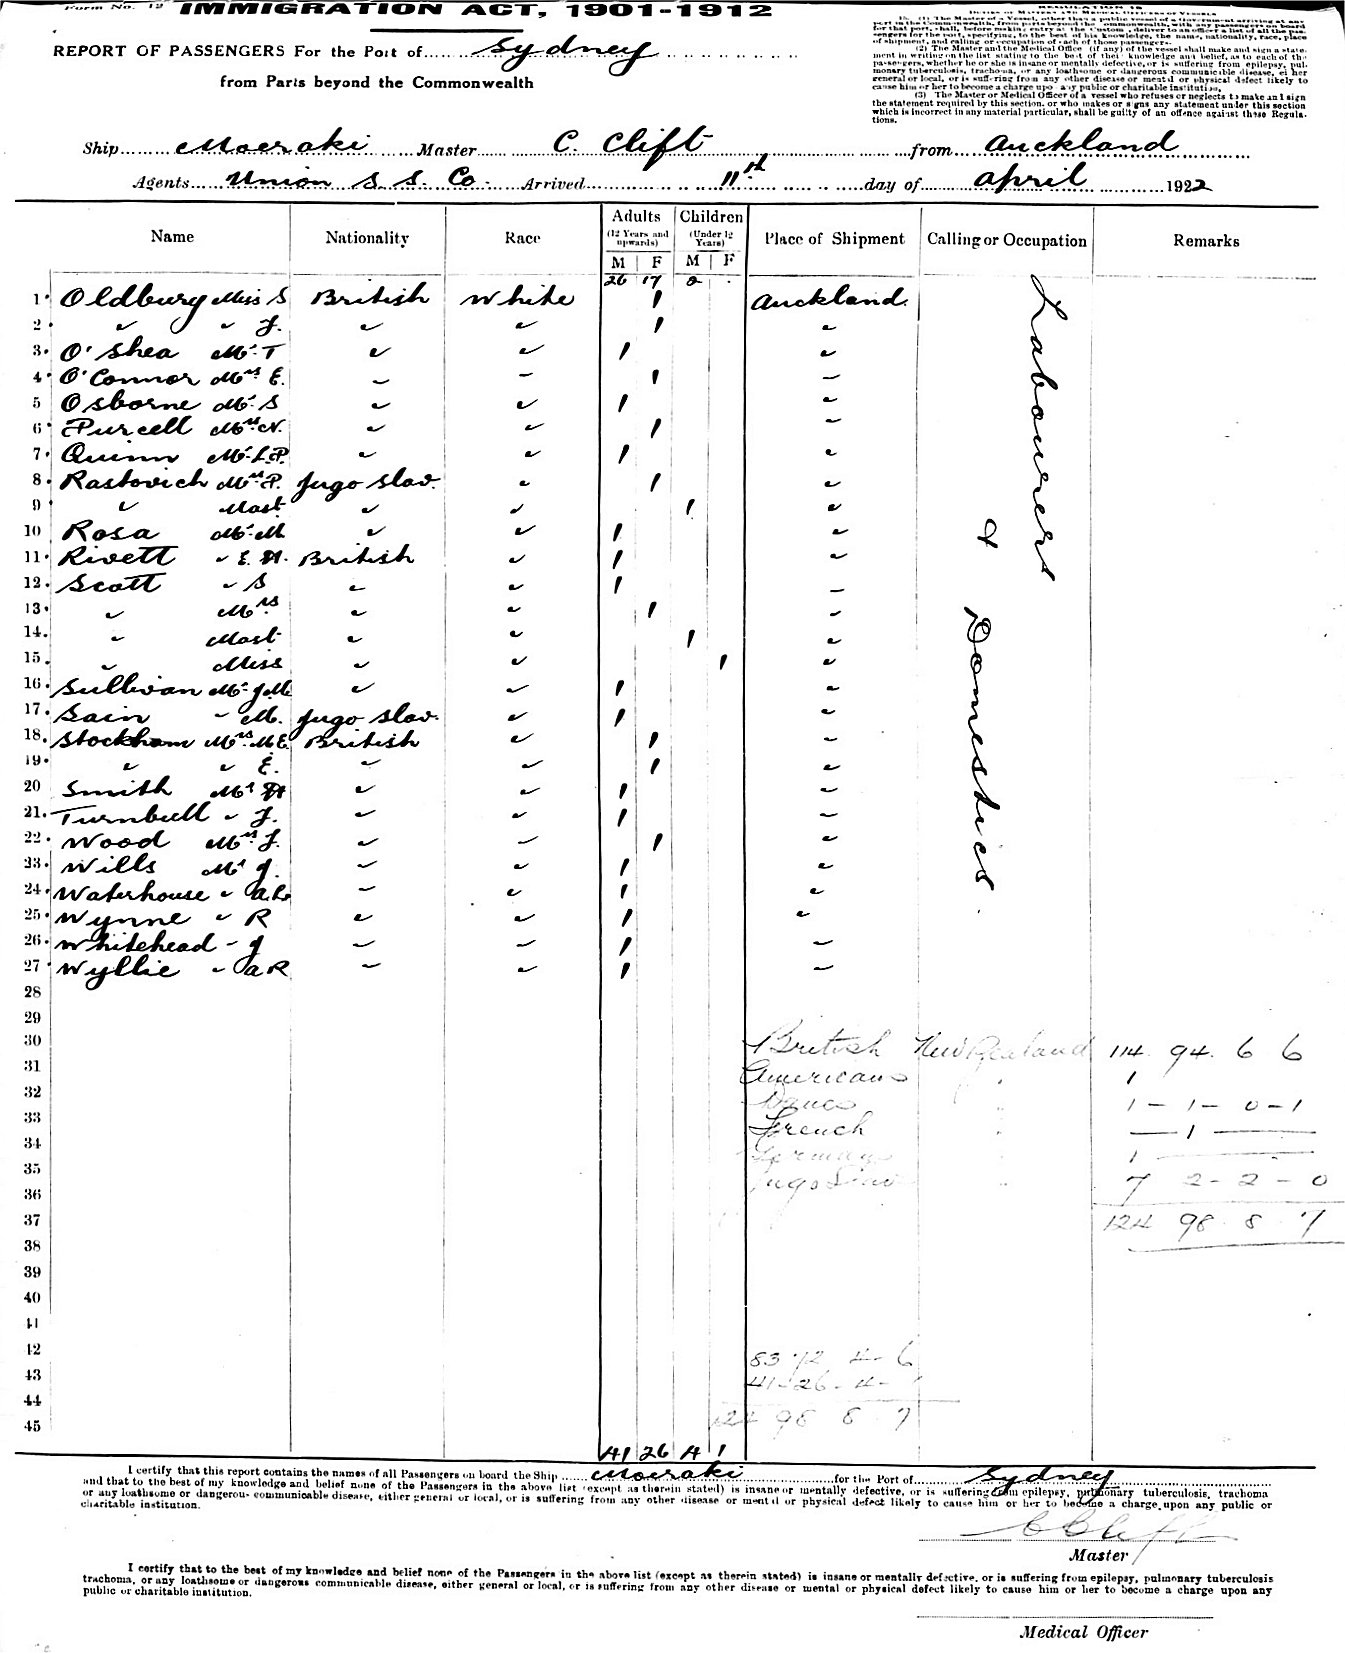 Form No. 12
IMMIGRATION ACT, 1901-1912
REPORT OF PASSENGERS For the Port of Sydney
from Parts beyond the Commonwealth
(2) The Master and the Medical Office (if any) of the vessel shall make and sign a state-
ment in writing on the list stating to the best of their knowledge and belief, as to each of the
passengers, whether he or she is insane or mentally defective, or is suffering from epilepsy, pul-
monary tuberculosis, trachoma, or any loathsome or dangerous communicable disease, either
general or local, or is suffering from any other disease or mental or physical defect likely to
cause him or her to become a charge upon any public or charitable institution.
(3) The Master or Medical Officer of a vessel who refuses or neglects to make and sign
the statement required by this section, or who makes or signs any statement under this section
which is incorrect in any material particular, shall be guilty of an offence against these Regula-
tions.
Ship Moeraki Master C. Clift from Auckland
Agents Union S. S. Co. Arrived 11th day of April 1922
Name Nationality Race Adults (12 Years and upwards) M F Children (Under 12 Years) M F Place of Shipment Calling or Occupation Remarks
26 17 0 .
1 Oldbury Miss S British White 1 Auckland
2 " " J. " " 1 "
3 O'Shea Mr T " " 1 "
4 O'Connor Mrs E. " " 1 "
5 Osborne Mr S " " 1 "
6 Purcell Mrs N. " " 1 "
7 Quinn Mr L.P. " " 1 "
8 Rastovich Mrs P. Jugo Slav. " 1 "
9 " Mast " " 1 "
10 Rosa Mr M " " 1 "
11 Rivett " E. H. British " 1 "
12 Scott " S " " 1 "
13 " Mrs " " 1 "
14 " Mast " " 1 "
15 " Miss " " 1 "
16 Sullivan Mr J.M. " " 1 "
17 Sain " M. Jugo Slav. " 1 "
18 Stockham Mrs M.E. British " 1 "
19 " " E. " " 1 "
20 Smith Mr H " " 1 "
21 Turnbull " J. " " 1 "
22 Wood Mrs J. " " 1 "
23 Wills Mr J. " " 1 "
24 Waterhouse " A.L. " " 1 "
25 Wynne " R " " 1 "
26 Whitehead " J " " 1 "
27 Wyllie " A R " " 1 "
Labourers & Domestics.
28
29
30 British New Zealand 114 94 6 6
31 Americans " 1
32 Danes " 1 - 1 - 0 - 1
33 French " — 1 —
34 Germans 1 —
35 Jugo Slav " 7 2 - 2 - 0
36
37 124 98 8 7
38
39
40
41
42 83 72 4 - 6
43 41 - 26 - 4 - 1
44
45 124 98 8 7
41 26 4 1
I certify that this report contains the names of all Passengers on board the Ship Moeraki for the Port of Sydney
and that to the best of my knowledge and belief none of the Passengers in the above list (except as therein stated) is insane or mentally defective, or is suffering from epilepsy, pulmonary tuberculosis, trachoma
or any loathsome or dangerous communicable disease, either general or local, or is suffering from any other disease or mental or physical defect likely to cause him or her to become a charge upon any public or
charitable institution.
C Clift
Master
I certify that to the best of my knowledge and belief none of the Passengers in the above list (except as therein stated) is insane or mentally defective, or is suffering from epilepsy, pulmonary tuberculosis
trachoma, or any loathsome or dangerous communicable disease, either general or local, or is suffering from any other disease or mental or physical defect likely to cause him or her to become a charge upon any
public or charitable institution.
Medical Officer